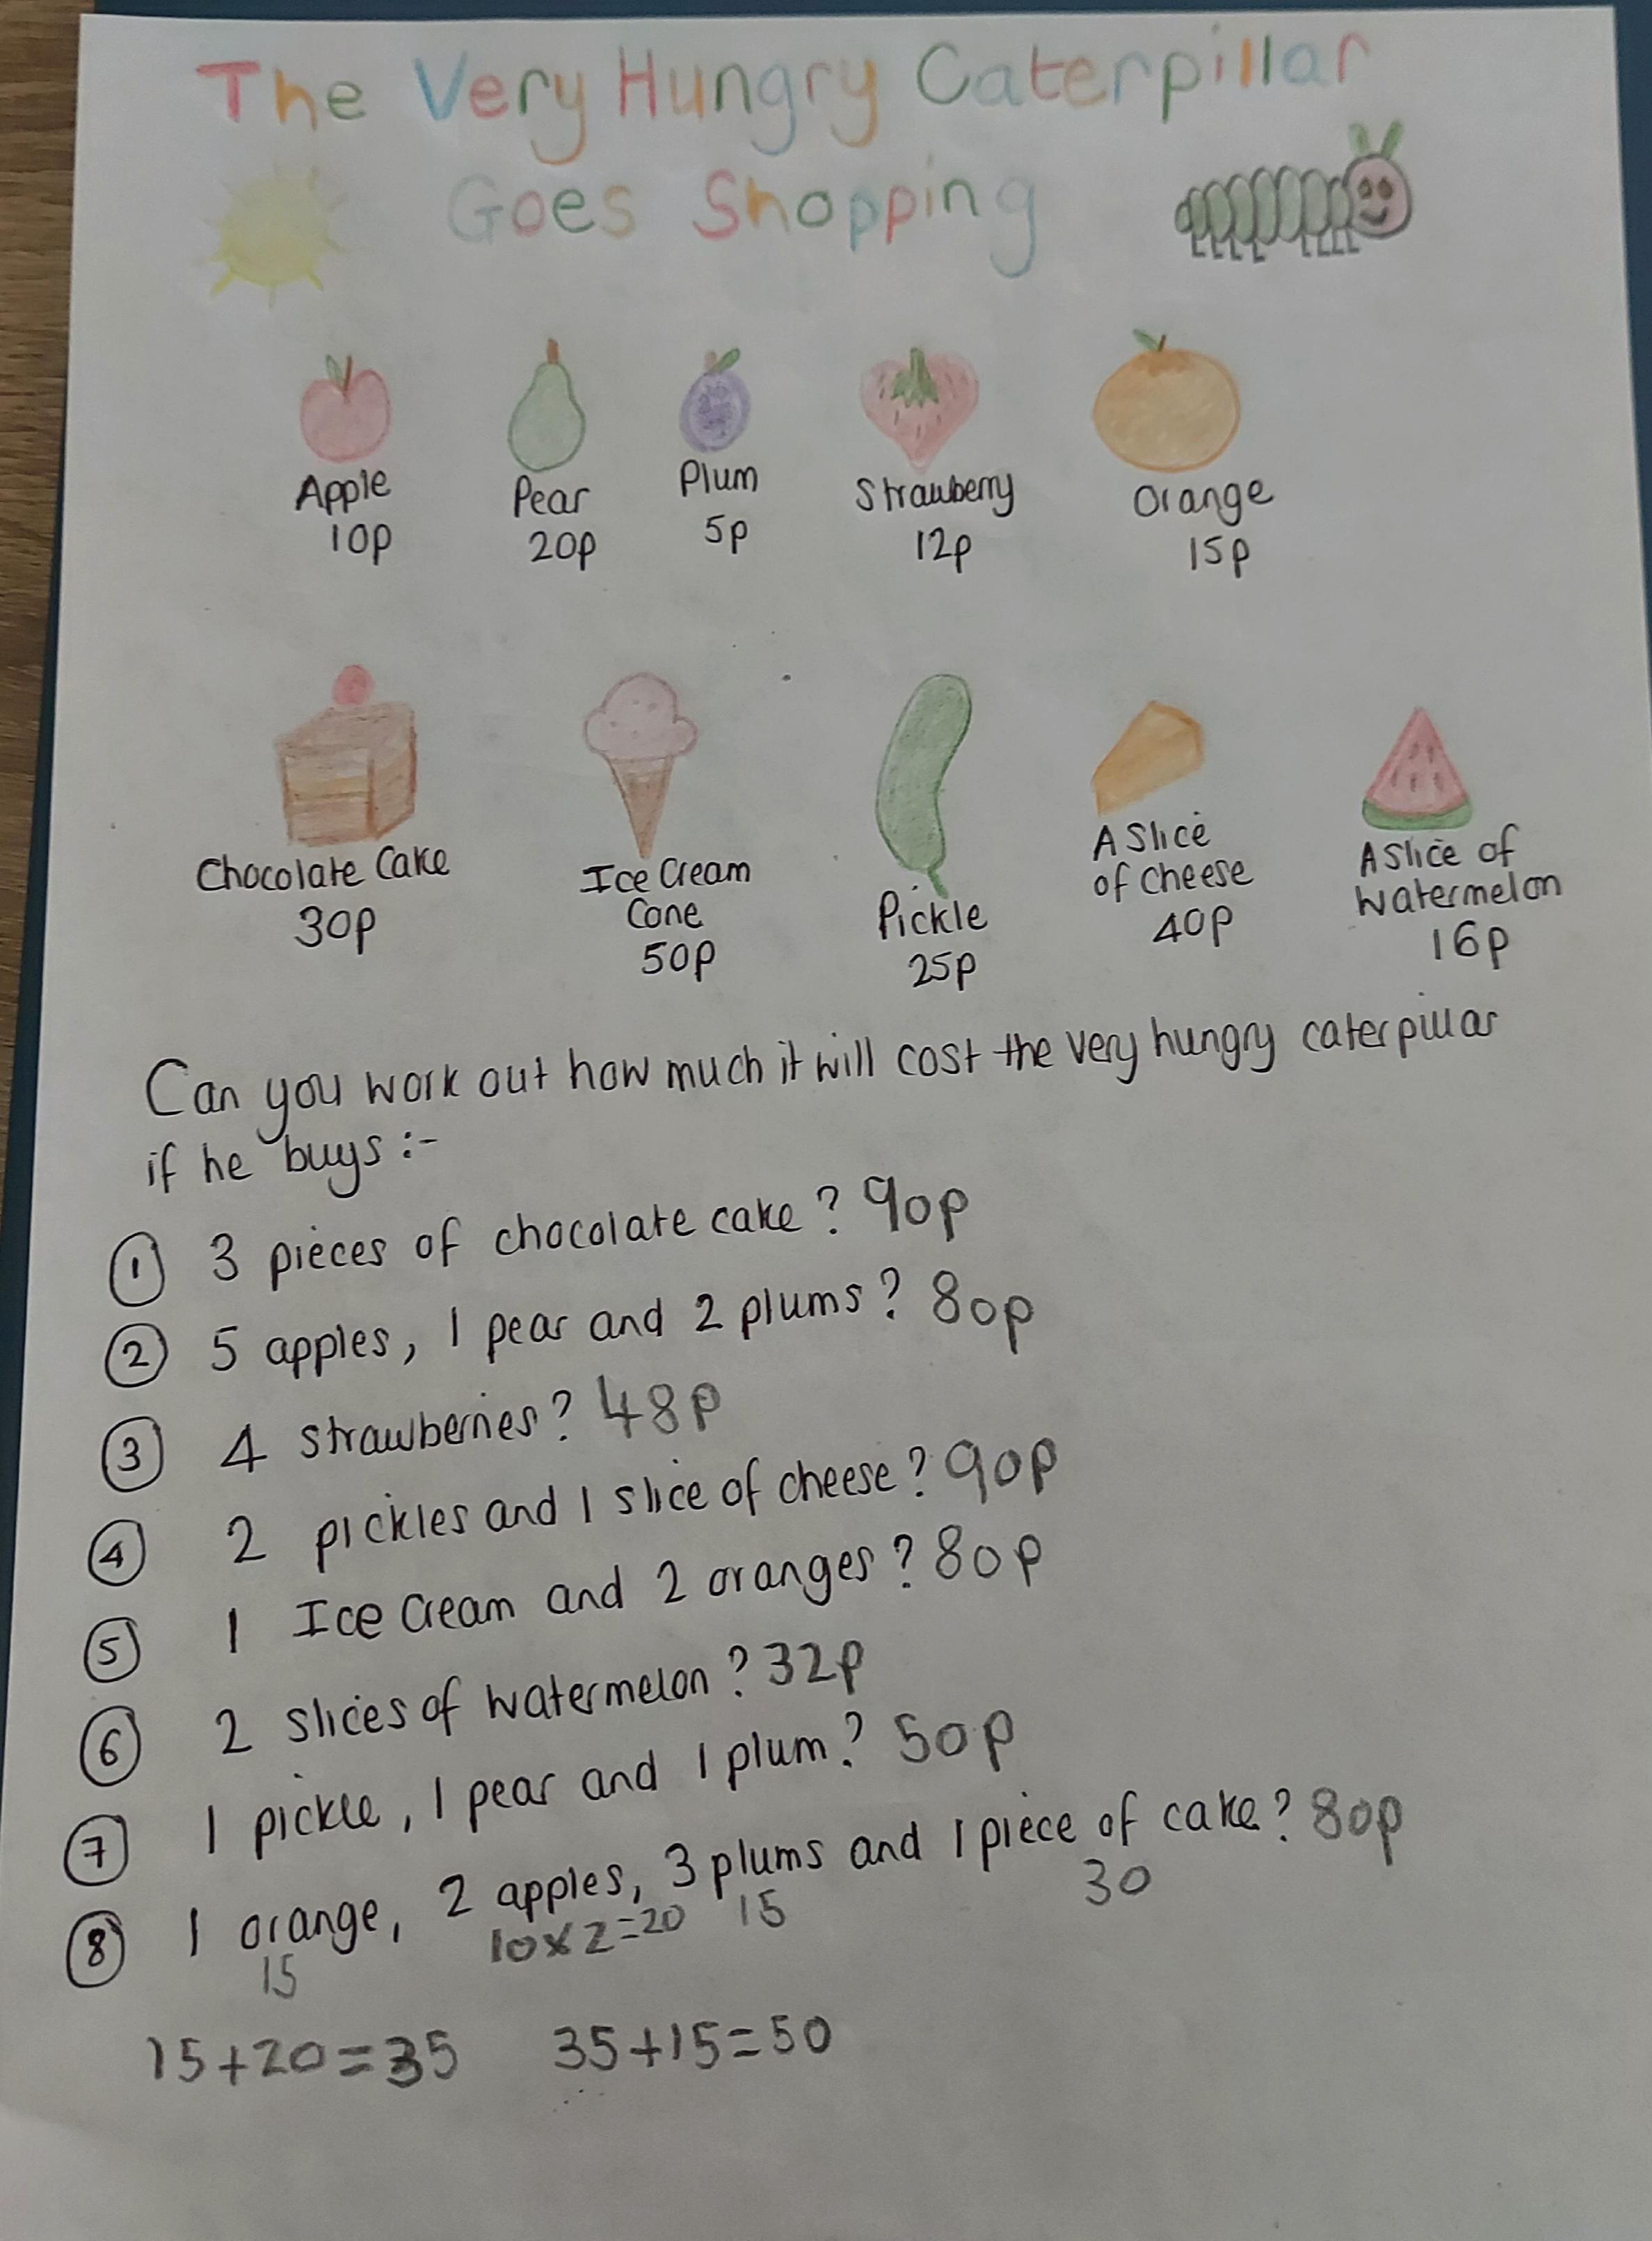 The Very Hungry Caterpillar
Goes Shopping
Apple
10p
Pear
20p
Plum
5p
Strawberry
12p
Orange
15p
Chocolate Cake
30p
Ice Cream
Cone
50p
Pickle
25p
A Slice
of cheese
40p
A slice of
watermelon
16p
Can you work out how much it will cost the very hungry caterpillar
if he buys :-
1 3 pieces of chocolate cake? 90p
2 5 apples, 1 pear and 2 plums? 80p
3 4 strawberries? 48p
4 2 pickles and 1 slice of cheese? 90p
5 1 Ice Cream and 2 oranges? 80p
6 2 slices of watermelon? 32p
7 1 pickle, 1 pear and 1 plum? 50p
8 1 orange, 2 apples, 3 plums and 1 piece of cake? 80p
15 10x2=20 15 30
15+20=35 35+15=50